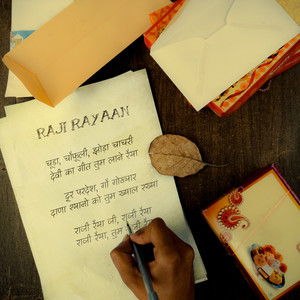 RAJI RAYAAN
चूड़ा, चाँफूली, झोड़ा चाचरी
देवी का गीत तुम लाने रैया
दूर परदेश, गौं गोठ्यार
दाणा सयानो को तुम ख्याल रख्या
राजी रैया जी, राजी रैया
राजी रैया, तुम